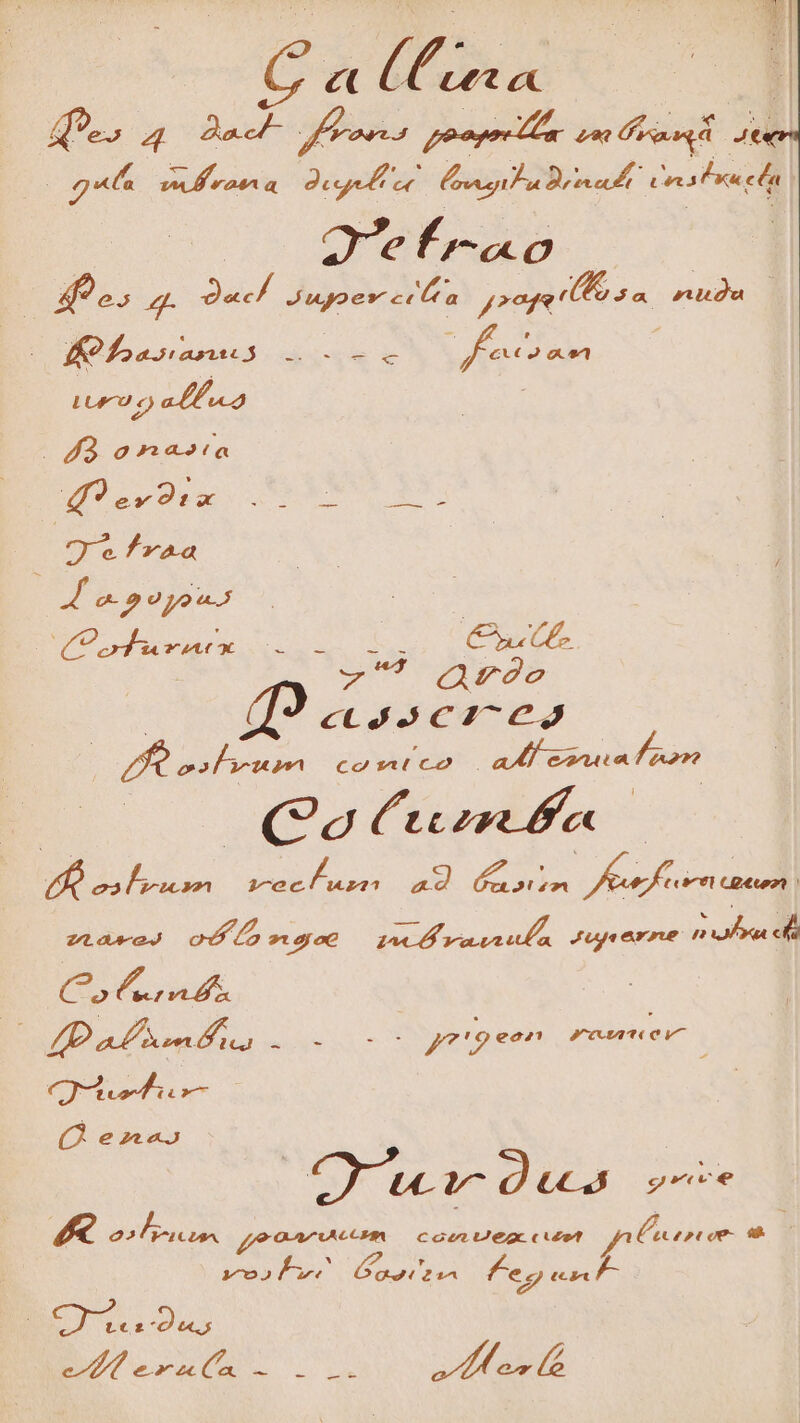 Gallina
Pes 4 dact frons papilla mbranâ
gula mbrana duplici longitudinali instructa
Tetrao
Pes 4 dact supercilia papillosa nuda
Phasianus - - - - faisan
urogallus
Bonasia
Perdix . . - - -
Tetrao
Lagopus
Coturnix - - - - Caille
7us Ordo
Passeres
Rostrum conico attenuatum
Columba
Rostrum rectum ad basim furfuraceum
nares oblongoe mbranula superne
Columba
Palumbus - - - - pigeon ramier
Turtur
Oenas
Turdus grive
Rostrum parvum convexum
rostri basim tegunt
Turdus
Merula - - - - Merle